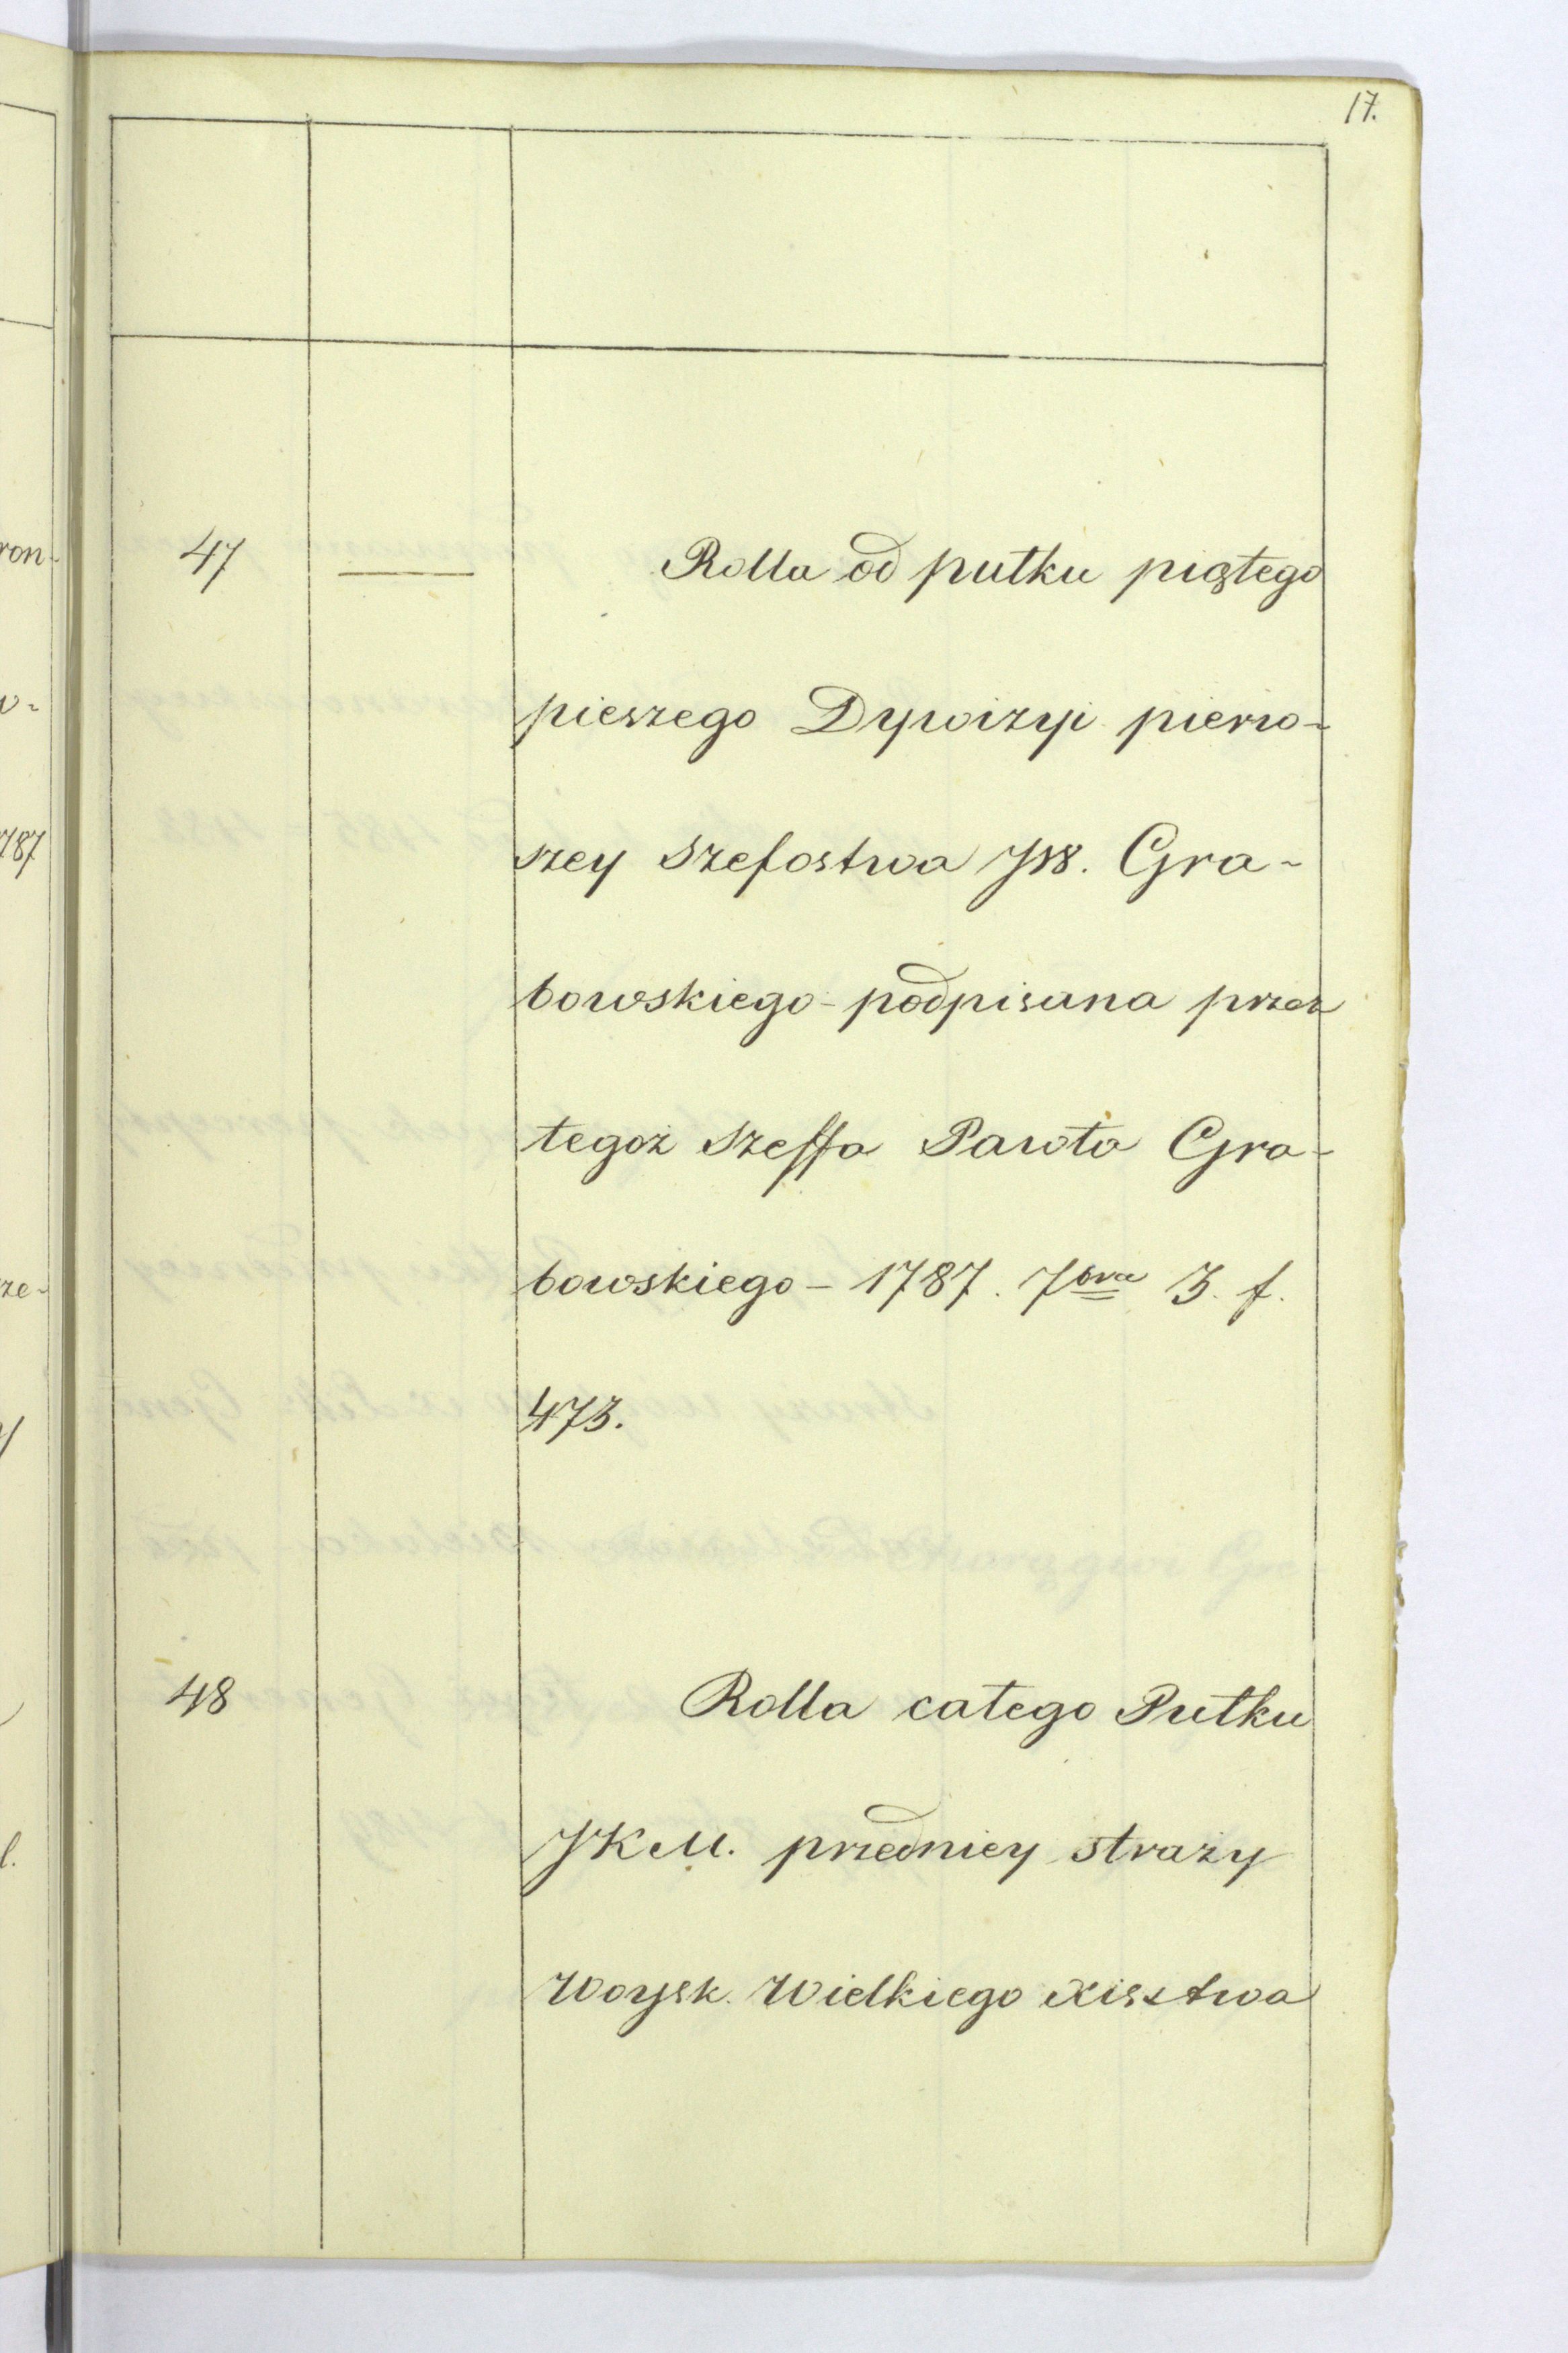 17.
47 — Rolla od pułku piątego
pieszego Dywizyi pierw-
szey Szefostwa JW. Gra-
bowskiego - podpisana przez
tegoż Szeffa Pawła Gra-
bowskiego - 1787. 7bra 3. f.
473.
48 Rolla całego Pułku
JKM. przedniey straży
Woysk. Wielkiego Xięstwa
ron-
w-
787
rze-
y
l.